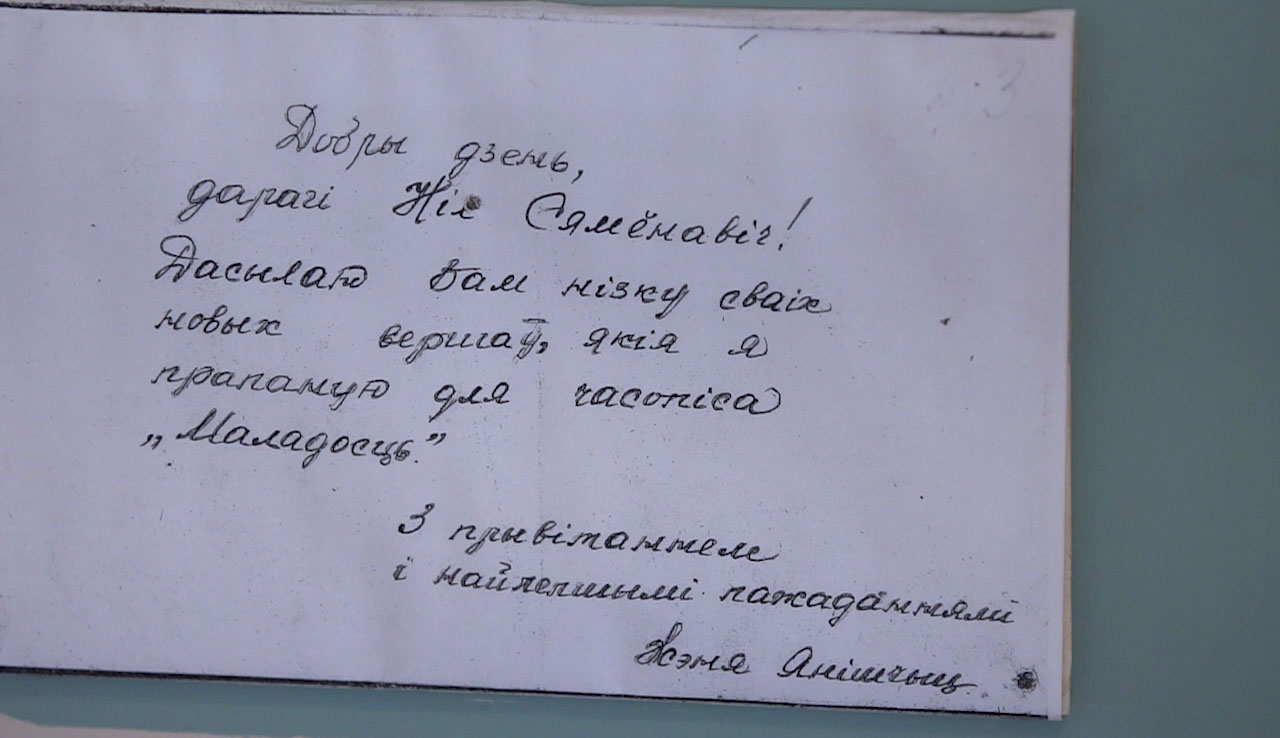 3
Добры дзень,
дарагі Ніл Сямёнавіч!
Дасылаю Вам нізку сваіх
новых вершаў, якія я
прапаную для часопіса
„Маладосць."
З прывітаннем
і найлепшымі пажаданнямі
Жэня Янішчыц